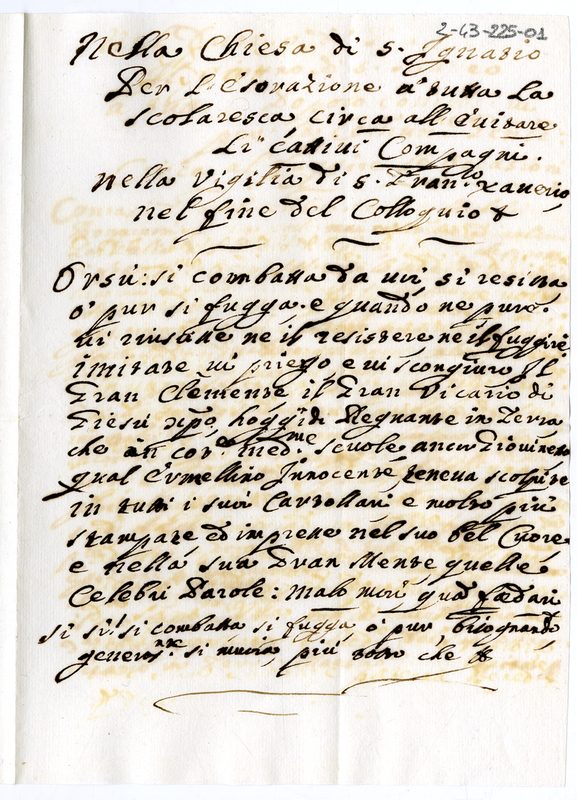 2-43-225-01
Nella Chiesa di S. Ignatio
Per l'esortazione a tutta la
scolaresca circa all'euitare
li cattiui Compagni.
nella Vigilia di S. Fran.co Xauerio,
nel fine del Colloquio &
Orsù: si combatta da uoi, si resista
ò pur si fugga. e quando ne pure
ui riuscisse ne il resistere ne il fuggire
imitate ui priego e ui scongiuro Il
Gran Clemente il Gran Vicario di
Giesù Xpo, hoggidì Regnante in Terra
che in coteste med.me scuole ancor Giouinetto
qual Ermellino Innocente teneua scolpite
in tutti i suoi Cartollari e molto più
stampate ed impresse nel suo bel Cuore
e nella sua Gran Mente quelle
Celebri Parole: malo mori quam foedari
si si! si combatta, si fugga, ò pur, bisognando
si muoia, più tosto che &